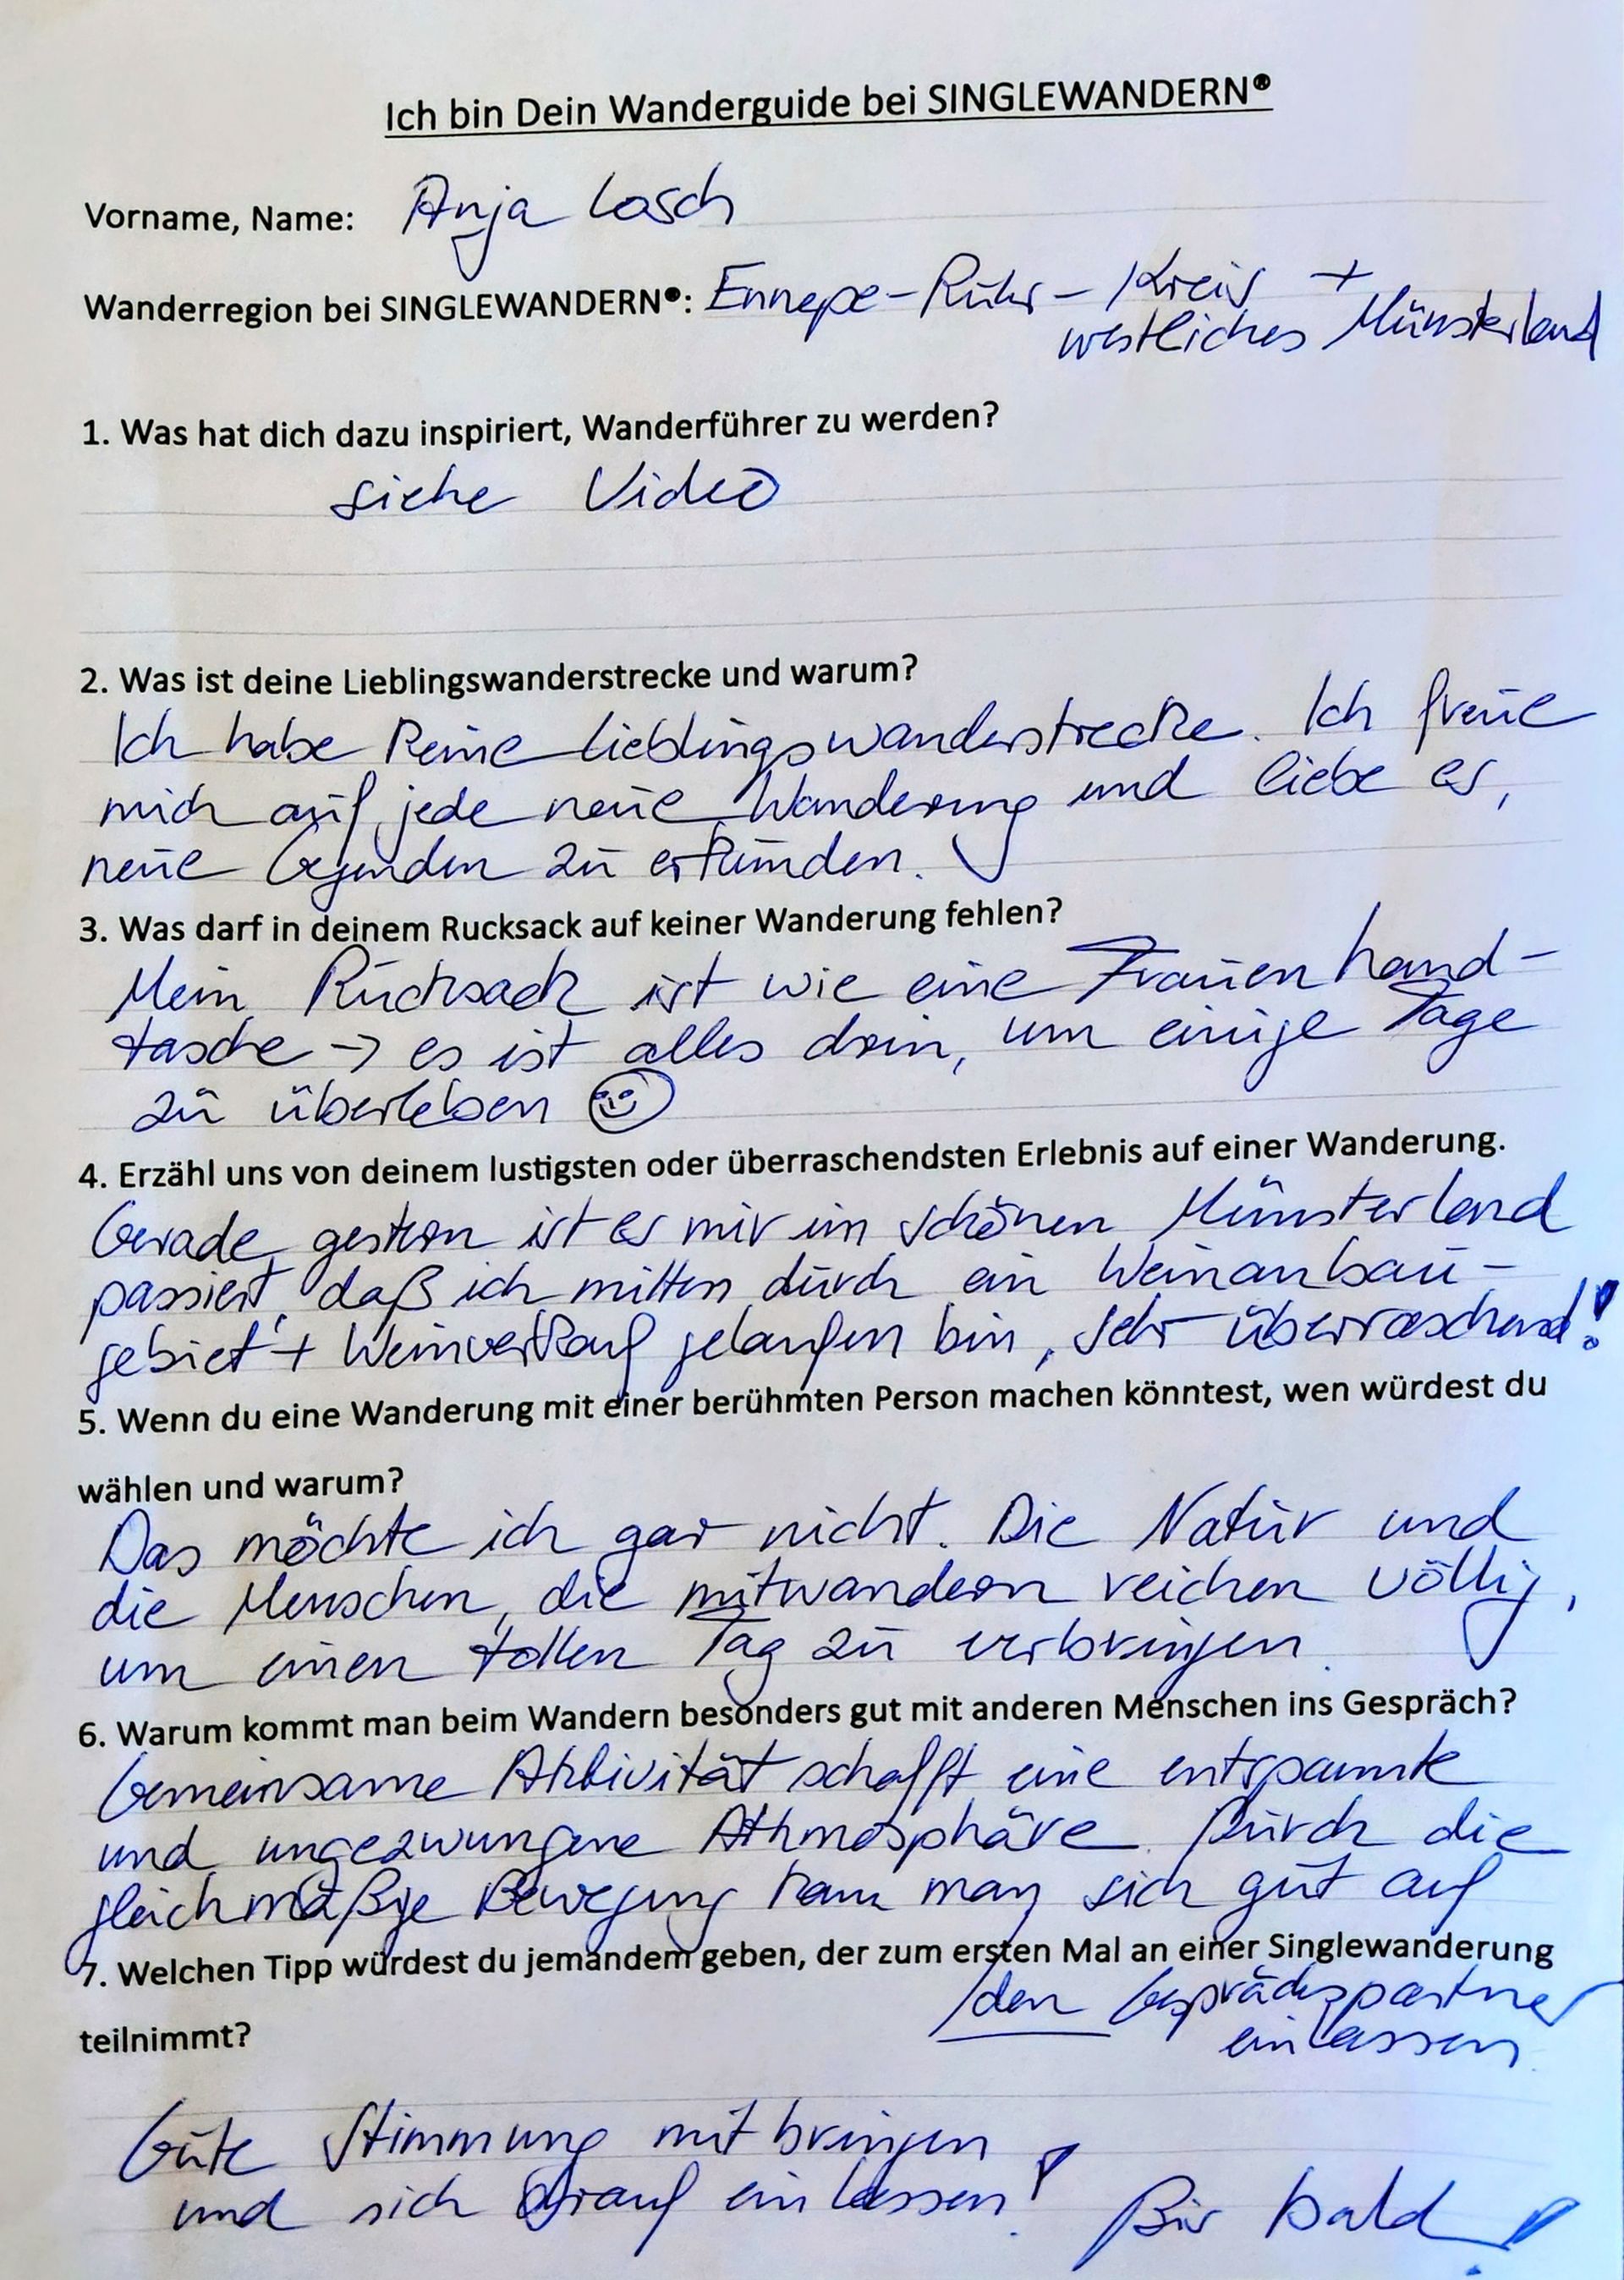 Ich bin Dein Wanderguide bei SINGLEWANDERN®
Vorname, Name: Anja Losch
Wanderregion bei SINGLEWANDERN®: Ennepe-Ruhr-Kreis +
westliches Münsterland
1. Was hat dich dazu inspiriert, Wanderführer zu werden?
siehe Video
2. Was ist deine Lieblingswanderstrecke und warum?
Ich habe keine Lieblingswanderstrecke. Ich freue
mich auf jede neue Wanderung und liebe es,
neue Gegenden zu erkunden.
3. Was darf in deinem Rucksack auf keiner Wanderung fehlen?
Mein Rucksack ist wie eine Frauenhand-
tasche → es ist alles drin, um einige Tage
zu überleben ☺
4. Erzähl uns von deinem lustigsten oder überraschendsten Erlebnis auf einer Wanderung.
Gerade gestern ist es mir im schönen Münsterland
passiert, daß ich mitten durch ein Weinanbau-
gebiet + Weinverkauf gelaufen bin, sehr überraschend!
5. Wenn du eine Wanderung mit einer berühmten Person machen könntest, wen würdest du
wählen und warum?
Das möchte ich gar nicht. Die Natur und
die Menschen, die mitwandern reichen völlig,
um einen tollen Tag zu verbringen.
6. Warum kommt man beim Wandern besonders gut mit anderen Menschen ins Gespräch?
Gemeinsame Aktivität schafft eine entspannte
und ungezwungene Athmosphäre. Durch die
gleichmäßige Bewegung kann man sich gut auf
/den Gesprächspartner
einlassen.
7. Welchen Tipp würdest du jemandem geben, der zum ersten Mal an einer Singlewanderung
teilnimmt?
Gute Stimmung mitbringen
und sich drauf einlassen! Bis bald!